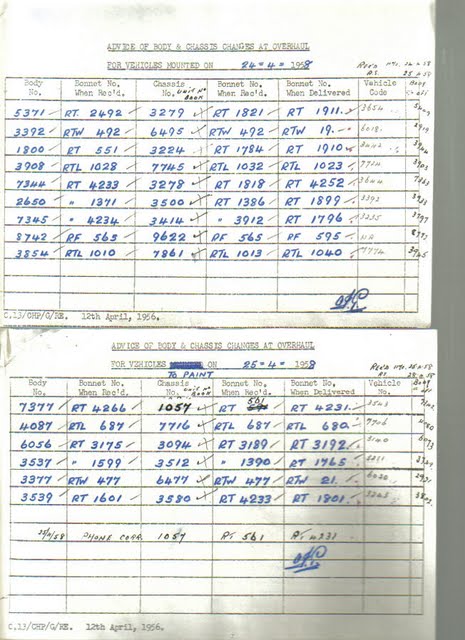 ADVICE OF BODY & CHASSIS CHANGES AT OVERHAUL
FOR VEHICLES MOUNTED ON 24-4-1958
Body No. Bonnet No. When Rec'd. Chassis No. UNIT No BOOK Bonnet No. When Rec'd. Bonnet No. When Delivered Vehicle Code
5371 RT 2492 3279 RT 1821 RT 1911 3654
3392 RTW 492 6495 RTW 492 RTW 19 6018
1800 RT 551 3224 RT 1784 RT 1910 3442
3908 RTL 1028 7745 RTL 1032 RTL 1023 7724
7344 RT 4233 3278 RT 1818 RT 4252 3644
2650 " 1371 3500 RT 1386 RT 1899 3393
7345 " 4234 3414 " 3912 RT 1796 3255
8742 RF 565 9622 RF 565 RF 595 NA
3854 RTL 1010 7861 RTL 1013 RTL 1040 7774
C.13/CHP/G/RE. 12th April, 1956.
ADVICE OF BODY & CHASSIS CHANGES AT OVERHAUL
FOR VEHICLES ON 25-4-1958
TO PAINT
Body No. Bonnet No. When Rec'd. Chassis No. UNIT No BOOK Bonnet No. When Rec'd. Bonnet No. When Delivered Vehicle No.
7377 RT 4266 1057 RT 561 RT 4231
4087 RTL 687 7716 RTL 687 RTL 680 7706
6056 RT 3175 3094 RT 3189 RT 3192 3140
3537 " 1599 3512 " 1390 RT 1765
3377 RTW 477 6477 RTW 477 RTW 21 6020
3539 RT 1601 3580 RT 4233 RT 1801
25/4/58 PHONE CORR. 1057 RT 561 RT 4231
C.13/CHP/G/RE. 12th April, 1956.